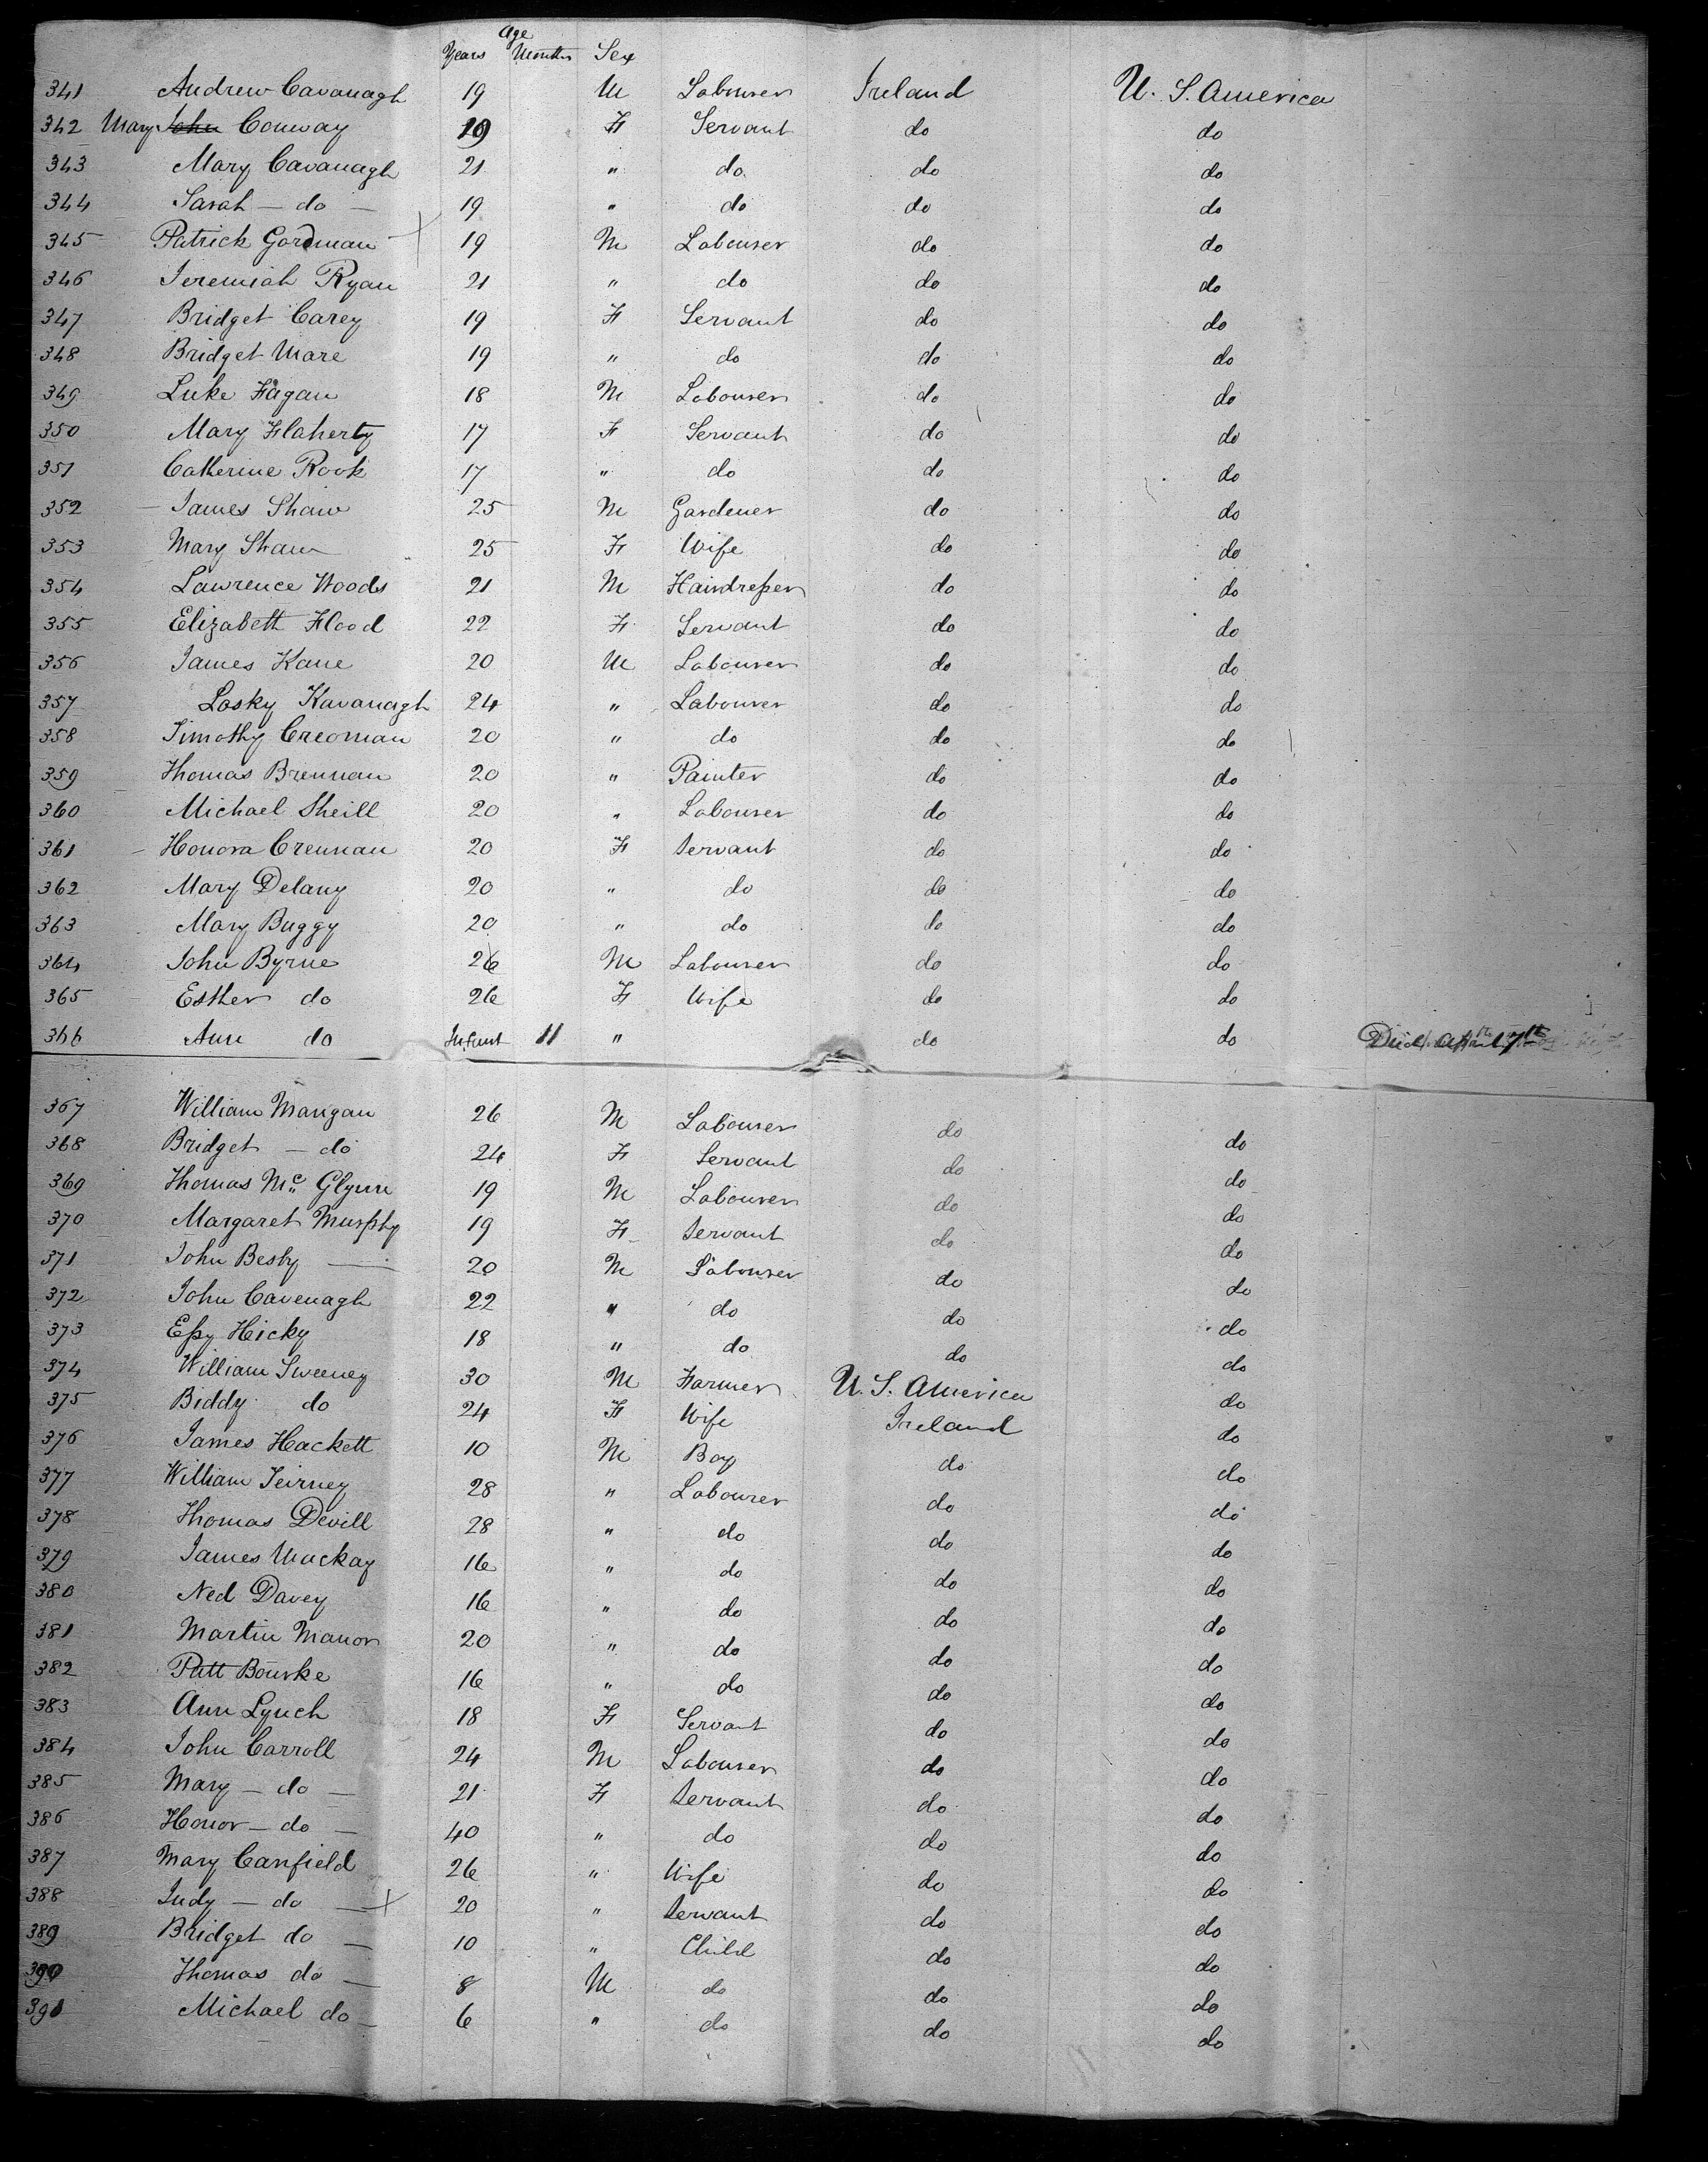 Age
Years Months Sex
341 Andrew Cavanagh 19 M Labourer Ireland U. S. America
342 Mary John Conway 19 F Servant do do
343 Mary Cavanagh 21 " do do do
344 Sarah - do - 19 " do do do
345 Patrick Gordman 19 M Labourer do do
346 Jeremiah Ryan 21 " do do do
347 Bridget Carey 19 F Servant do do
348 Bridget Mare 19 " do do do
349 Luke Fagan 18 M Labourer do do
350 Mary Flaherty 17 F Servant do do
351 Catherine Rook 17 " do do do
352 James Shaw 25 M Gardener do do
353 Mary Shaw 25 F Wife do do
354 Lawrence Woods 21 M Hairdresser do do
355 Elizabeth Flood 22 F Servant do do
356 James Kane 20 M Labourer do do
357 Losky Kavanagh 24 " Labourer do do
358 Timothy Creoman 20 " do do do
359 Thomas Brennan 20 " Painter do do
360 Michael Sheill 20 " Labourer do do
361 Honora Crennan 20 F Servant do do
362 Mary Delany 20 " do do do
363 Mary Buggy 20 " do do do
364 John Byrne 26 M Labourer do do
365 Esther do 26 F Wife do do
366 Ann do Infant 11 " do do Died April 7th
367 William Mangan 26 M Labourer do do
368 Bridget - do 24 F Servant do do
369 Thomas Mc Glynn 19 M Labourer do do
370 Margaret Murphy 19 F Servant do do
371 John Besby 20 M Labourer do do
372 John Cavenagh 22 " do do do
373 Essy Hicky 18 " do do do
374 William Sweeney 30 M Farmer U. S. America do
375 Biddy do 24 F Wife Ireland do
376 James Hackett 10 M Boy do do
377 William Teirney 28 " Labourer do do
378 Thomas Devill 28 " do do do
379 James Mackay 16 " do do do
380 Ned Davey 16 " do do do
381 Martin Manor 20 " do do do
382 Patt Bourke 16 " do do do
383 Ann Lynch 18 F Servant do do
384 John Carroll 24 M Labourer do do
385 Mary - do - 21 F Servant do do
386 Honor - do - 40 " do do do
387 Mary Canfield 26 " Wife do do
388 Judy - do - 20 " Servant do do
389 Bridget do - 10 " Child do do
390 Thomas do - 8 M do do do
391 Michael do - 6 " do do do